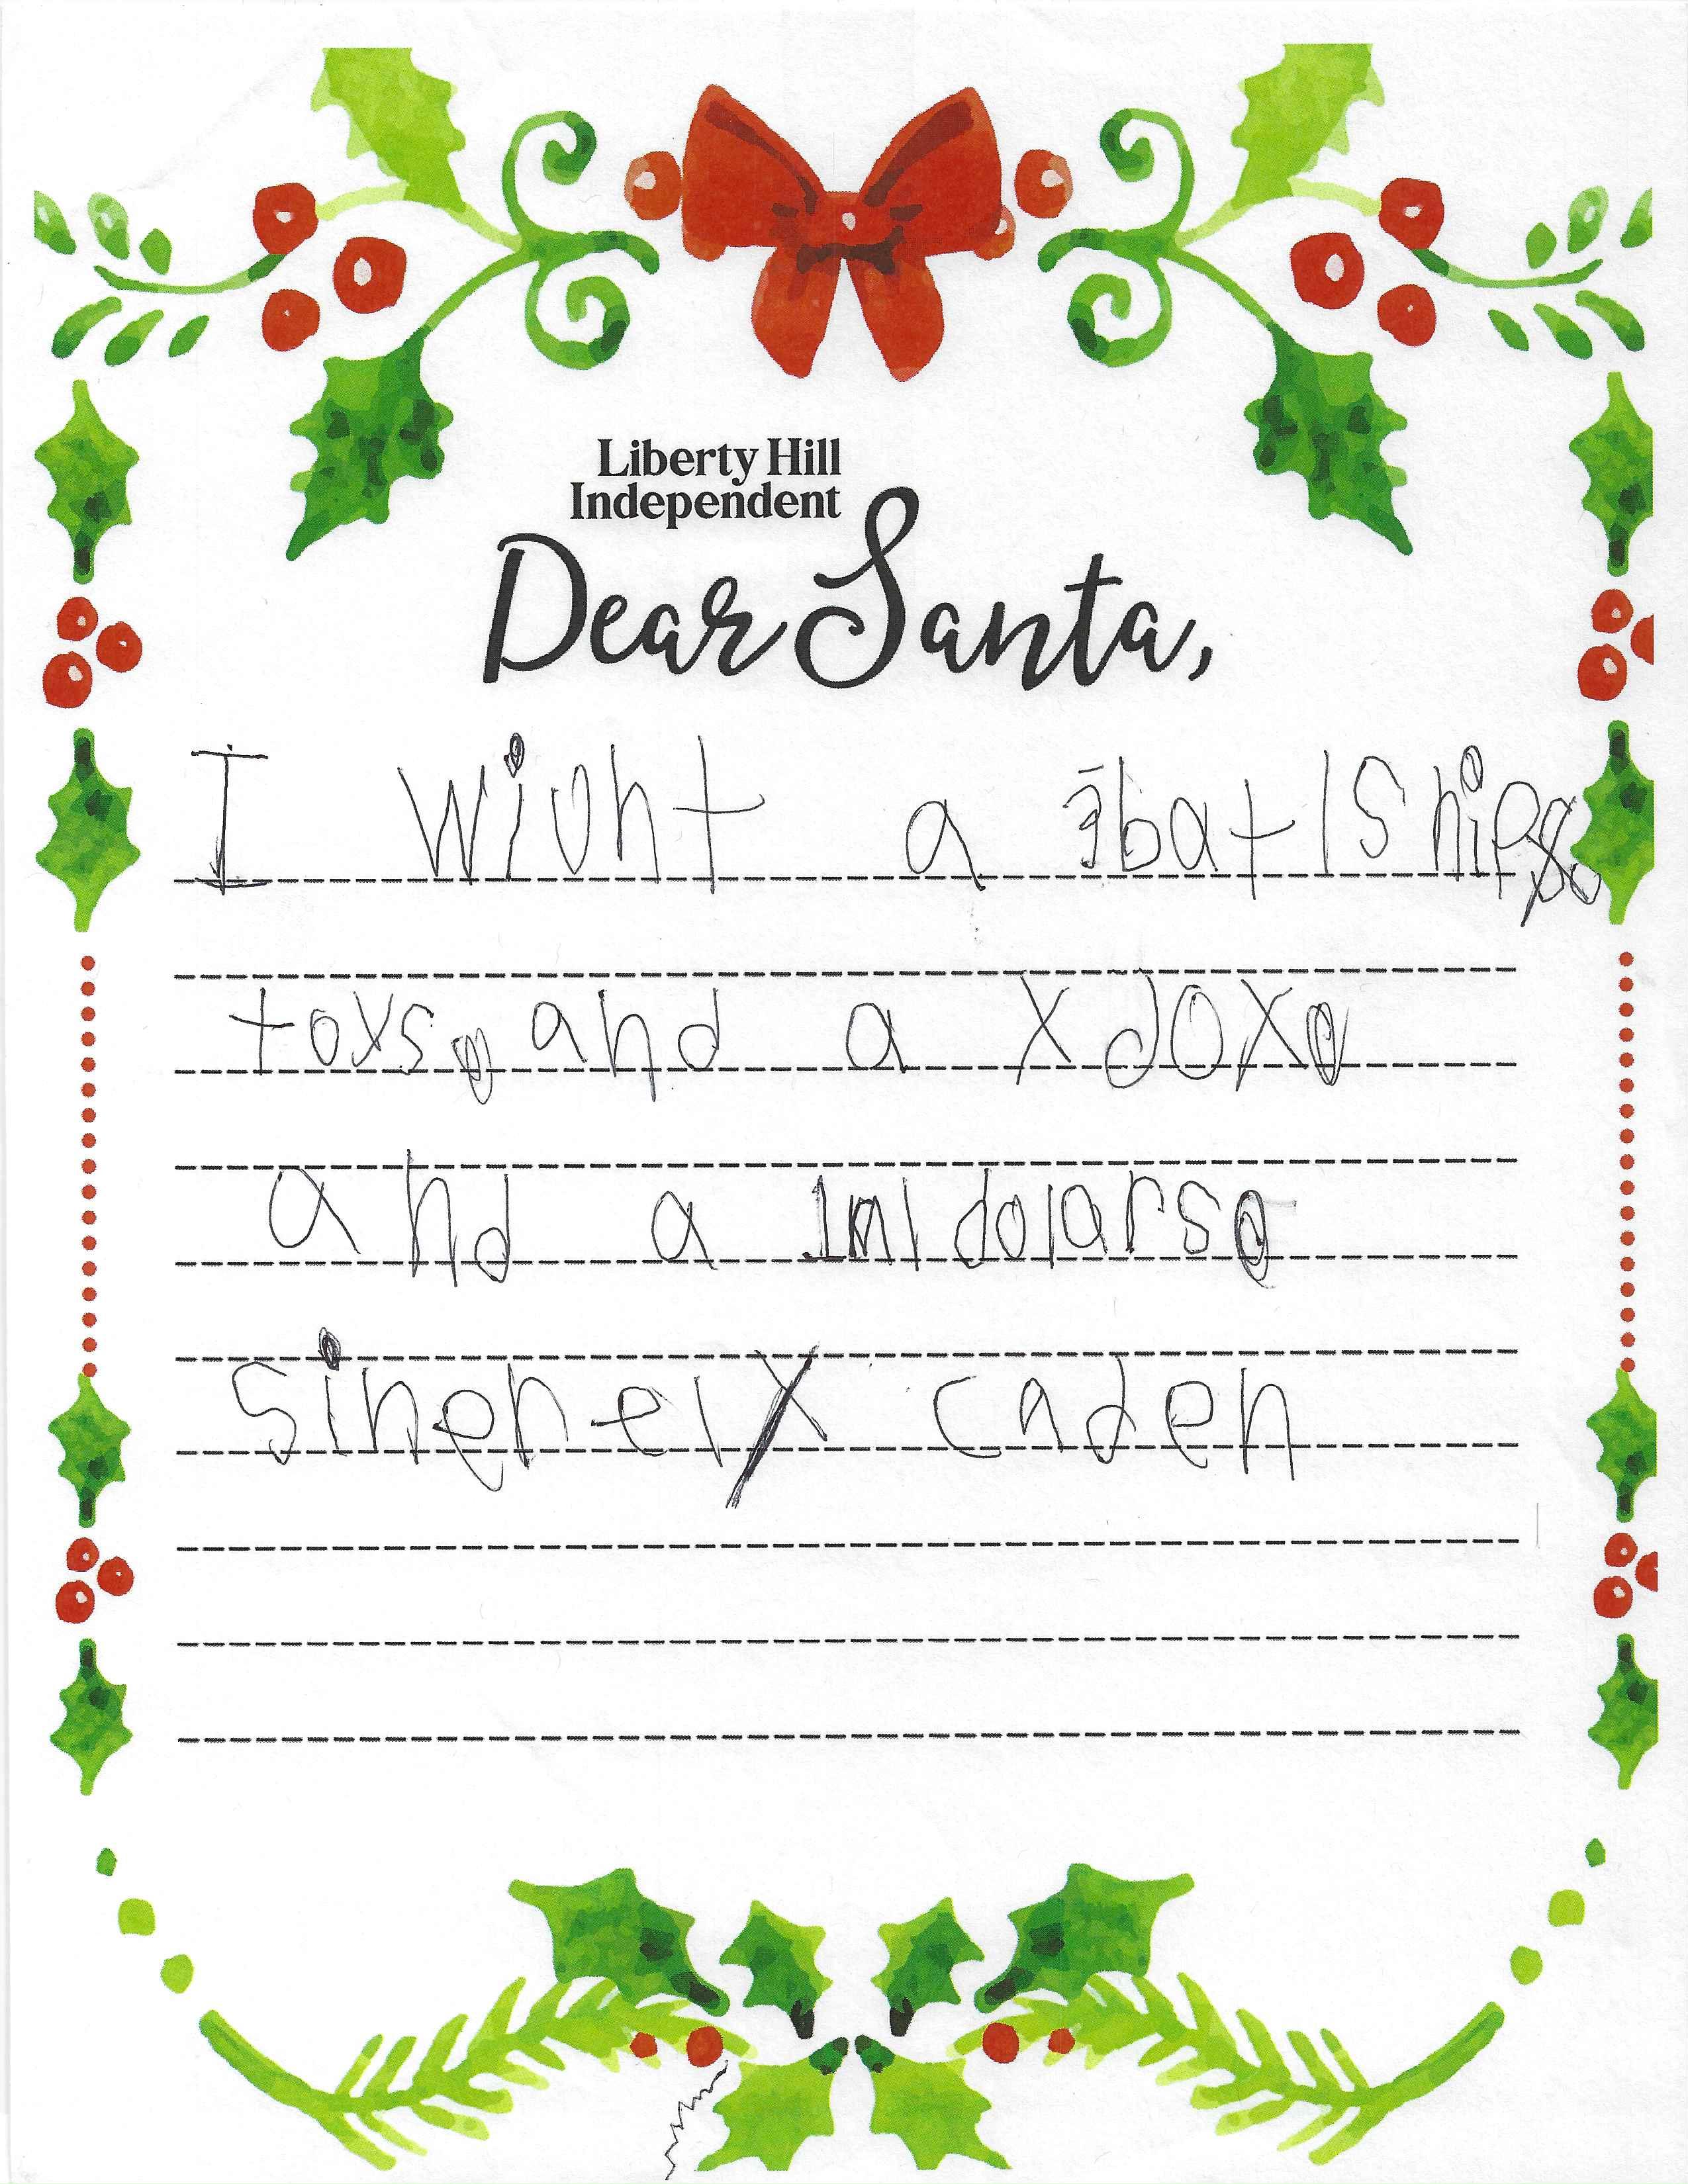 Liberty Hill
Independent
Dear Santa,
I wiuht a 3batlships
toys, and a xdox,
and a 1ml dolars,
sinenely caden